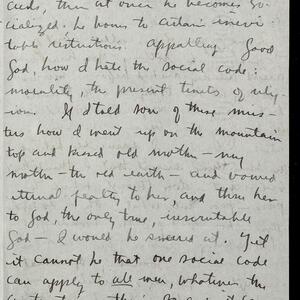 ceeds, then at once he becomes so-
cialized. he bows to certain inevi-
table restrictions. appalling. Good
God, how I hate the social code:
morality, the present tenets of relig-
ion. If I told some of these mis-
ters how I went up on the mountain
top and kissed old mother — my
mother — the old earth — and vowed
eternal fealty to her, and thru her
to God, the only true, inscrutable
God — I would be sneered at. Yet
it cannot be that one social code
can apply to all men, whatever the